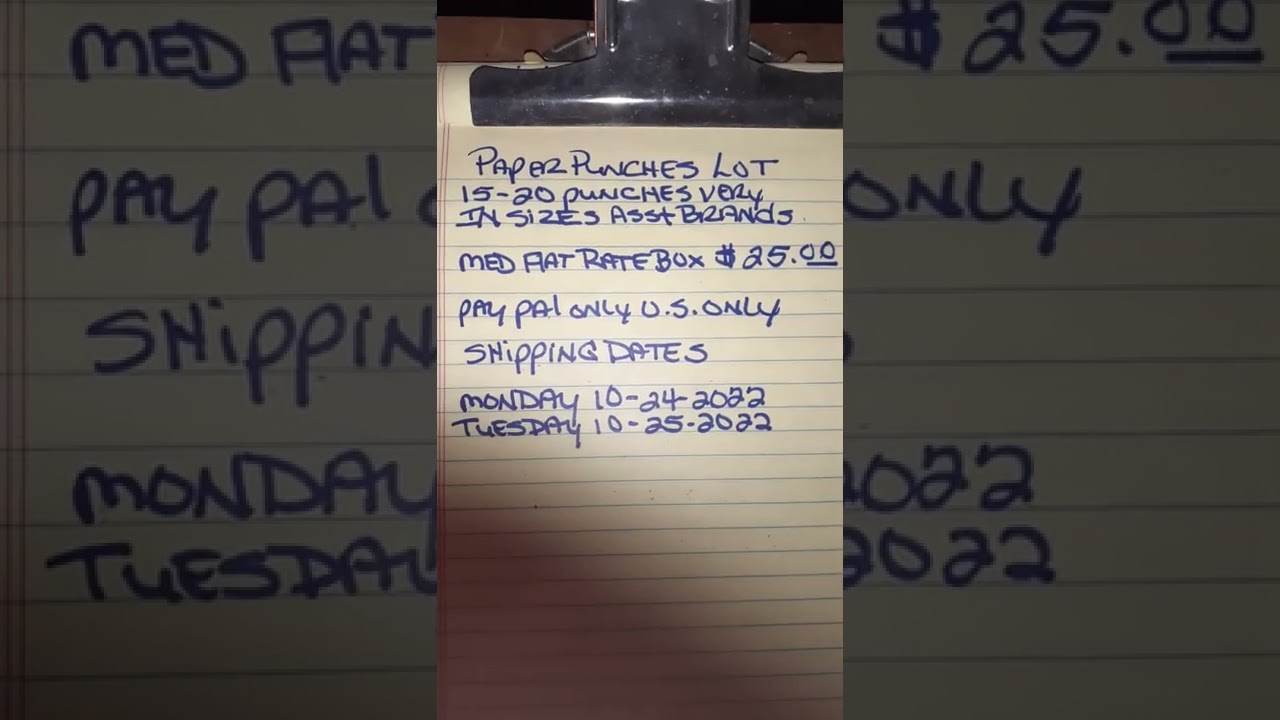 PAPER PUNCHES LOT
15-20 PUNCHES VERY
IN SIZES ASST BRANDS.
MED FlAT RATE BOX $25.00
PAY PAl ONLY U.S. ONLY
SHiPPING DATES
MONDAY 10-24-2022
TUESDAY 10-25-2022